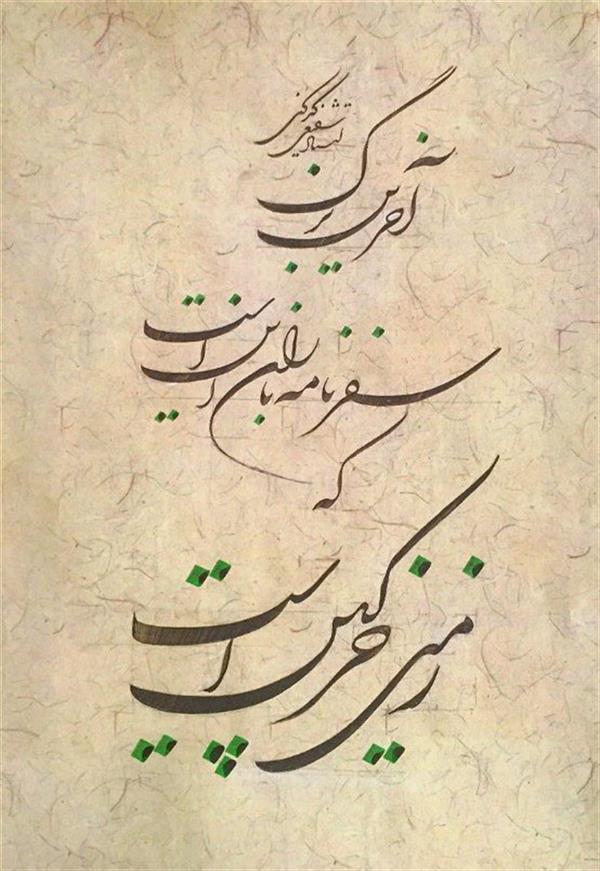 استاد شفیعی کدکنی
آخرین برگ
سفرنامه باران این است
که
زمین چرکین است